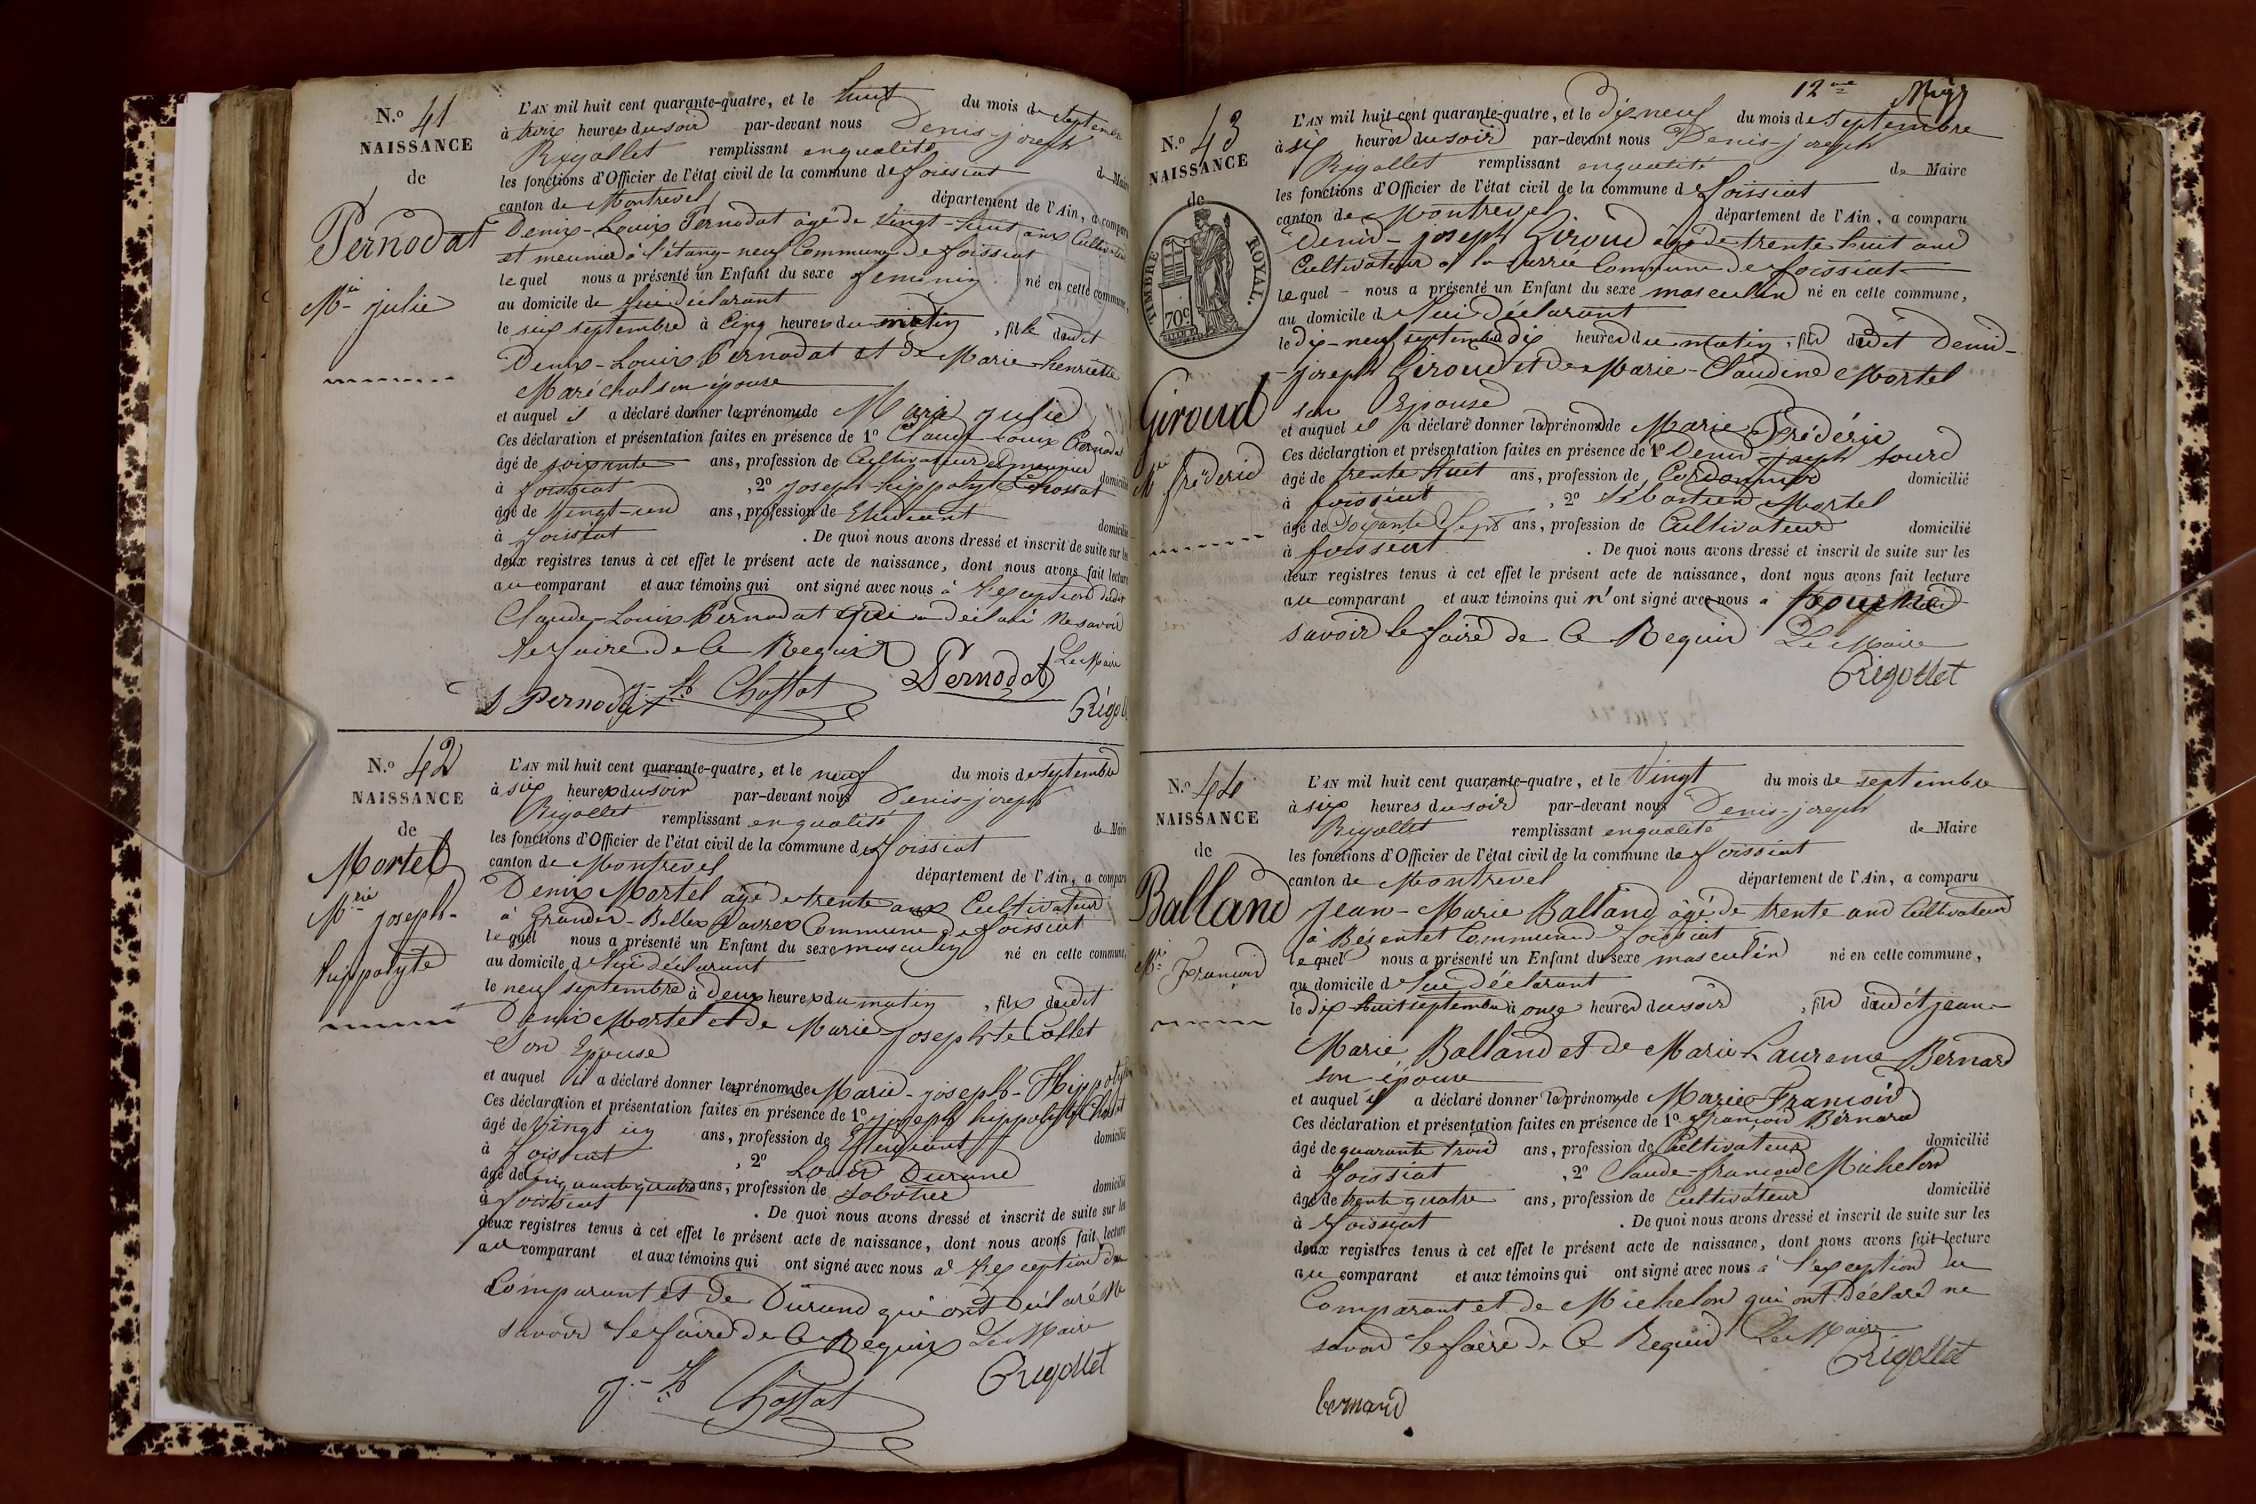 N.o 41
NAISSANCE
de
Pernodat
Mie julie
L'AN mil huit cent quarante-quatre, et le huit du mois de septembre
à trois heures du soir par-devant nous Denis-joseph
Rigollet remplissant en qualité de Maire
les fonctions d'Officier de l'état civil de la commune de foissiat
canton de Montrevel département de l'Ain, a comparu
Denix-Louis Pernodat âgé de vingt-huit ans Cultivateur
et meunier à l'étang-neuf Commune de foissiat
le quel nous a présenté un Enfant du sexe feminin né en cette commune,
au domicile de lui déclarant
le six septembre à Cinq heures du matin, fille dudit
Denix-Louis Pernodat et de Marie-henriette
Maréchal son épouse
et auquel il a déclaré donner les prénoms de Marie julie
Ces déclaration et présentation faites en présence de 1o Claude Louis Pernodat
âgé de soixante ans, profession de Cultivateur et meunier domicilié
à foissiat, 2o joseph-hippolyte Chossat
âgé de vingt-un ans, profession de Etudiant domicilié
à foissiat. De quoi nous avons dressé et inscrit de suite sur les
deux registres tenus à cet effet le présent acte de naissance, dont nous avons fait lecture
au comparant et aux témoins qui ont signé avec nous à l'exception dudit
Claude-Louis Pernodat qui a déclaré ne savoir
le faire de ce Requis Le Maire
Pernodat J.-H. Chossat Pernodat Rigol
N.o 42
NAISSANCE
de
Mortel
Mrie joseph-
hippolyte
L'AN mil huit cent quarante-quatre, et le neuf du mois de septembre
à six heures du soir par-devant nous Denis-joseph
Rigollet remplissant en qualité de Maire
les fonctions d'Officier de l'état civil de la commune de foissiat
canton de Montrevel département de l'Ain, a comparu
Denix Mortel âgé de trente ans Cultivateur
à Grandes-Belles Vavres Commune de foissiat
le quel nous a présenté un Enfant du sexe masculin né en cette commune,
au domicile de lui déclarant
le neuf septembre à deux heures du matin, fils dudit
Denix Mortel et de Marie josephte Collet
Son Epouse
et auquel il a déclaré donner les prénoms de Marie-joseph-Hippolyte
Ces déclaration et présentation faites en présence de 1o joseph hippolyte Chossat
âgé de vingt un ans, profession de Etudiant domicilié
à foissiat, 2o Louis Durand
âgé de cinquante quatre ans, profession de sabotier domicilié
à foissiat. De quoi nous avons dressé et inscrit de suite sur les
deux registres tenus à cet effet le présent acte de naissance, dont nous avons fait lecture
au comparant et aux témoins qui ont signé avec nous à l'exception du
Comparant et de Durand qui ont déclaré ne
savoir le faire de ce Requis Le Maire
J.-H. Chossat Rigollet
12me
N.o 43
NAISSANCE
de
TIMBRE ROYAL.
70c
Giroud
Mie fréderic
L'AN mil huit cent quarante-quatre, et le dix neuf du mois de septembre
à six heures du soir par-devant nous Denis-joseph
Rigollet remplissant en qualité de Maire
les fonctions d'Officier de l'état civil de la commune de foissiat
canton de Montrevel département de l'Ain, a comparu
Denis-joseph Giroud âgé de trente huit ans
Cultivateur à la Commune de foissiat
le quel nous a présenté un Enfant du sexe masculin né en cette commune,
au domicile de lui déclarant
le dix-neuf septembre à dix heures du matin, fils dudit Denis-
joseph Giroud et de Marie-Claudine Mortel
son Epouse
et auquel il a déclaré donner les prénoms de Marie Fréderic
Ces déclaration et présentation faites en présence de 1o Denis-joseph
âgé de trente huit ans, profession de Cordonnier domicilié
à foissiat, 2o Sébastien Mortel
âgé de Soixante Sept ans, profession de Cultivateur domicilié
à foissiat. De quoi nous avons dressé et inscrit de suite sur les
deux registres tenus à cet effet le présent acte de naissance, dont nous avons fait lecture
au comparant et aux témoins qui n'ont signé avec nous pour ne
savoir le faire de Ce Requis Le Maire
Rigollet
N.o 44
NAISSANCE
de
Balland
Mie François
L'AN mil huit cent quarante-quatre, et le Vingt du mois de septembre
à six heures du soir par-devant nous Denis-joseph
Rigollet remplissant en qualité de Maire
les fonctions d'Officier de l'état civil de la commune de foissiat
canton de Montrevel département de l'Ain, a comparu
Jean-Marie Balland âgé de trente ans Cultivateur
à Bésentet Commune de foissiat
le quel nous a présenté un Enfant du sexe masculin né en cette commune,
au domicile de lui déclarant
le dix huit septembre à onze heures du soir, fils dudit jean-
Marie Balland et de Marie Laurence Bernard
son épouse
et auquel il a déclaré donner les prénoms de Marie François
Ces déclaration et présentation faites en présence de 1o François Bernard
âgé de quarante trois ans, profession de Cultivateur domicilié
à foissiat, 2o Claude-françois Michelon
âgé de trente quatre ans, profession de Cultivateur domicilié
à foissiat. De quoi nous avons dressé et inscrit de suite sur les
deux registres tenus à cet effet le présent acte de naissance, dont nous avons fait lecture
au comparant et aux témoins qui ont signé avec nous à l'exception du
Comparant et de Michelon qui ont déclaré ne
savoir le faire de Ce Requis Le Maire
Rigollet
bernard